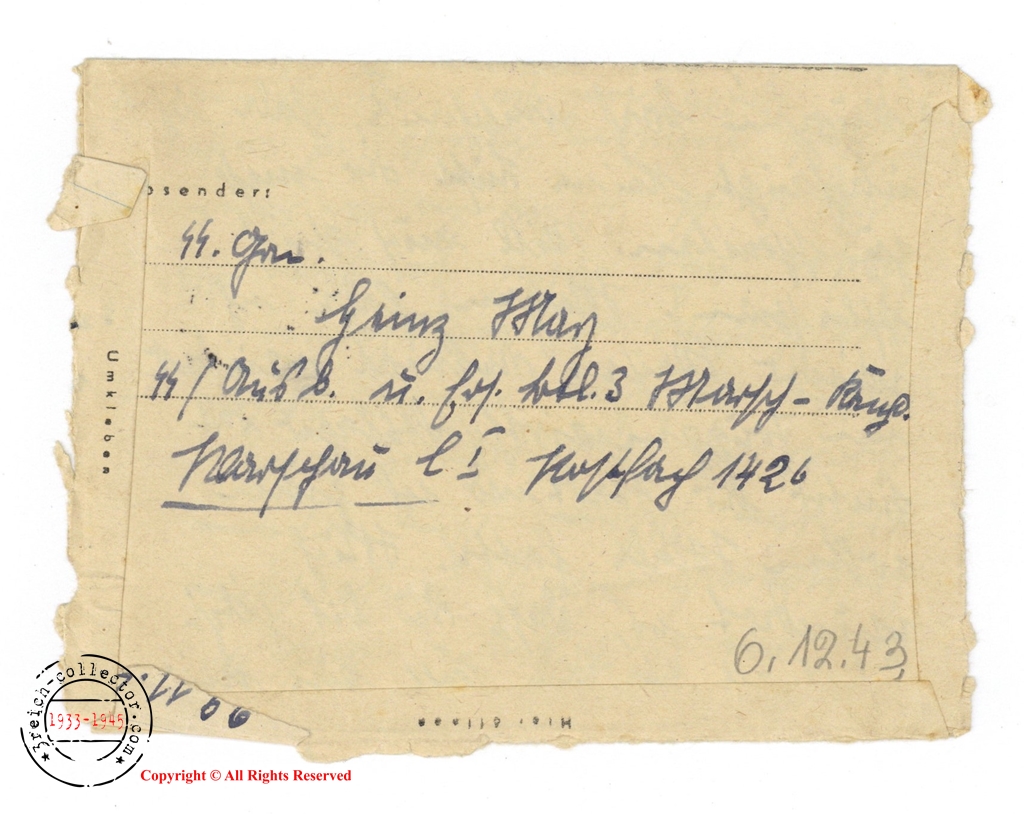 bsender:
SS. Gren.
Heinz May
SS / Ausb. u. Ers. Btl. 3 Marsch-Komp.
Warschau C I Postfach 1426
Umkleben
6.12.43
Hier öffnen
3reich-collector.com
1933-1945
Copyright © All Rights Reserved